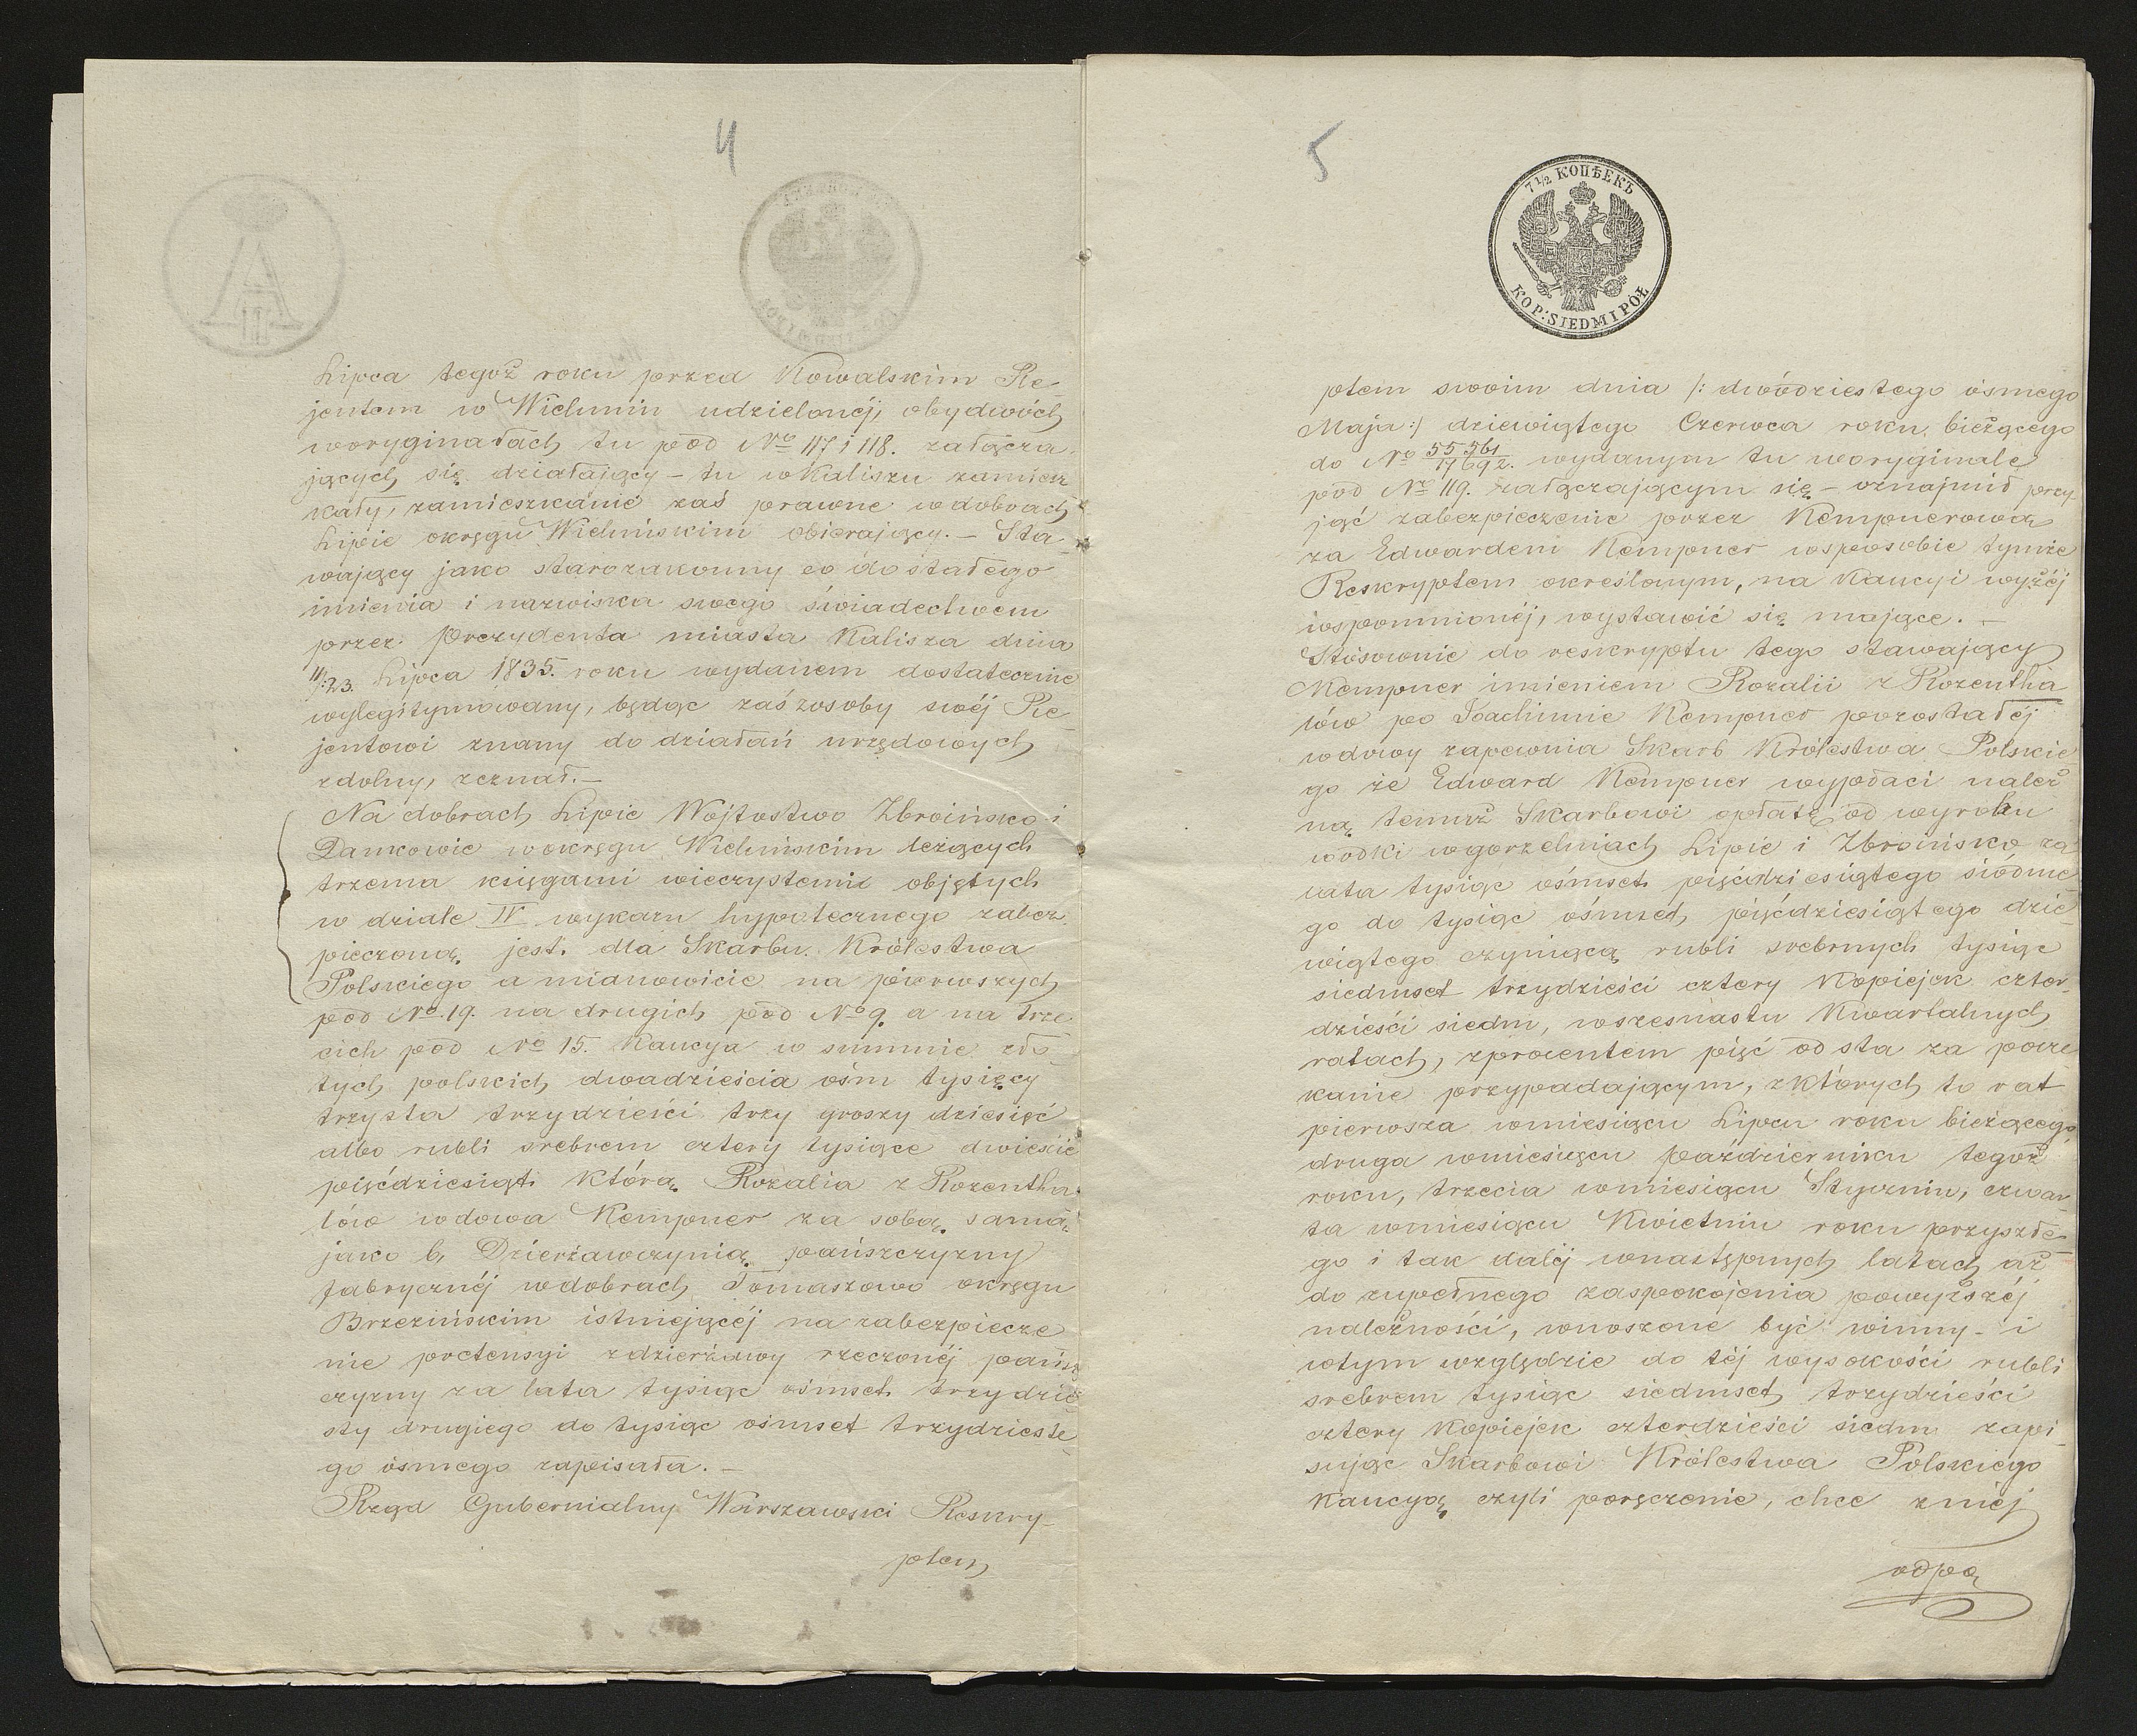 4
Lipca tegoż roku przed Kowalskim Re-
jentem w Wieluniu udzielonéj, obydwóch
woryginałach tu pod No 117 i 118. załącza-
jących się działający – tu w Kaliszu zamiesz
kały, zamieszkanie zaś prawne w dobrach
Lipie okręgu Wieluńskim obierający. – Sta-
wający jako starozakonny co do stałego
imienia i nazwiska swego świadectwem
przez Prezydenta miasta Kalisza dnia
11/23. Lipca 1835. roku wydanem dostatecznie
wylegitymowany, będąc zaś zosoby swéj Re
jentowi znany do działań urzędowych
zdolny, zeznał. –
Na dobrach Lipie Wójtostwo Zbroińsko i
Dankowie w okręgu Wieluńskim leżących
trzema księgami wieczystemi objętych
w dziale IV wykazu hypotecznego zabez
pieczoną jest dla Skarbu Królestwa
Polskiego a mianowicie na pierwszych
pod No. 19. na drugich pod No 9. a na trze-
cich pod No 15. Kaucya w summie zło-
tych polskich dwadzieścia ośm tysięcy
trzysta trzydzieści trzy groszy dziesięć
albo rubli srebrem cztery tysiące dwieście
pięćdziesiąt którą Rozalia z Rozentha-
lów wdowa Kempner za sobą samą
jako b. Dzierżawczynią pańszczyzny
fabrycznéj w dobrach Tomaszowo okręgu
Brzezińskim istniejącéj na zabezpiecze
nie pretensyi z dzierżawy rzeczonéj pańsz
czyzny za lata tysiąc ośmset trzydzie
sty drugiego do tysiąc ośmset trzydzieste
go ósmego zapisała. –
Rząd Gubernialny Warszawski Reskry-
ptem
5
7 1/2 КОПѢЕКЪ
KOP: SIEDM I PÓŁ
ptem swoim dnia /: dwódziestego ósmego
Maja :/ dziewiątego Czerwca roku bieżącego
do No 55561/17692. wydanym tu w oryginale
pod No 119. załączającym się – oznajmił przy
jąć zabezpieczenie przez Kempnerową
za Edwardem Kempner w sposobie tymże
Reskryptem określonym, na Kaucyi wyżéj
wspomnionéj, wystawić się mające. –
Stósownie do reskryptu tego stawający
Kempner imieniem Rozalii z Rozentha
lów po Joachimie Kempner pozostałéj
wdowy zapewnia Skarb Królestwa Polskie
go że Edward Kempner wypłaci należ
ną temuż Skarbowi opłatę od wyrobu
wódki w gorzelniach Lipie i Zbroińsko za
lata tysiąc ośmset pięćdziesiątego siódme
go do tysiąc ośmset pięćdziesiątego dzie
wiątego czyniącą rubli srebrnych tysiąc
siedmset trzydzieści cztery Kopiejek czter-
dzieści siedm, w szesnastu Kwartalnych
ratach, z procentem pięć od sta za pocze
kanie przypadającym, z których to rat
pierwsza w miesiącu Lipcu roku bieżącego,
druga w miesiącu Październiku tegoż
roku, trzecia w miesiącu Styczniu, czwar
ta w miesiącu Kwietniu roku przyszłe-
go i tak daléj w następnych latach aż
do zupełnego zaspokojenia powyższéj
należności, wnoszone być winny – i
w tym względzie do téj wysokości rubli
srebrem tysiąc siedmset trzydzieści
cztery Kopiejek czterdzieści siedm zapi-
sując Skarbowi Królestwa Polskiego
Kaucyą czyli poręczenie, chce z niéj
odpo